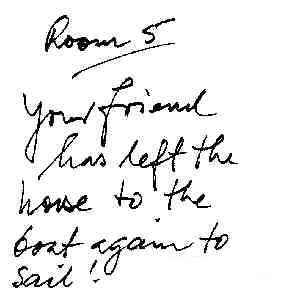 Room 5
Your friend
has left the
house to the
boat again to
sail!